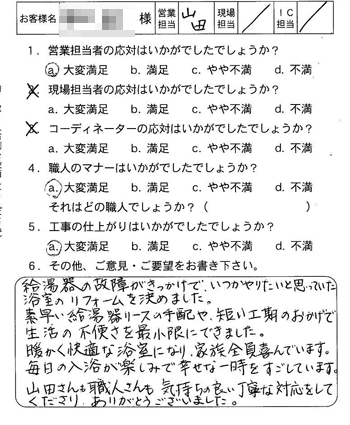 お客様名 様 営業担当 山田 現場担当 / IC担当 /
1. 営業担当者の応対はいかがでしたでしょうか？
a. 大変満足 b. 満足 c. やや不満 d. 不満
X 現場担当者の応対はいかがでしたでしょうか？
a. 大変満足 b. 満足 c. やや不満 d. 不満
X コーディネーターの応対はいかがでしたでしょうか？
a. 大変満足 b. 満足 c. やや不満 d. 不満
4. 職人のマナーはいかがでしたでしょうか？
a. 大変満足 b. 満足 c. やや不満 d. 不満
それはどの職人でしょうか？（ ）
5. 工事の仕上がりはいかがでしたでしょうか？
a. 大変満足 b. 満足 c. やや不満 d. 不満
6. その他、ご意見・ご要望をお書き下さい。
給湯器の故障がきっかけで、いつかやりたいと思っていた
浴室のリフォームを決めました。
素早い給湯器リースの手配や、短い工期のおかげで
生活の不便さを最小限にできました。
暖かく快適な浴室になり、家族全員喜んでいます。
毎日の入浴が楽しみで幸せな一時をすごしています。
山田さんも職人さんも気持ちの良い丁寧な対応をして
くださり、ありがとうございました。